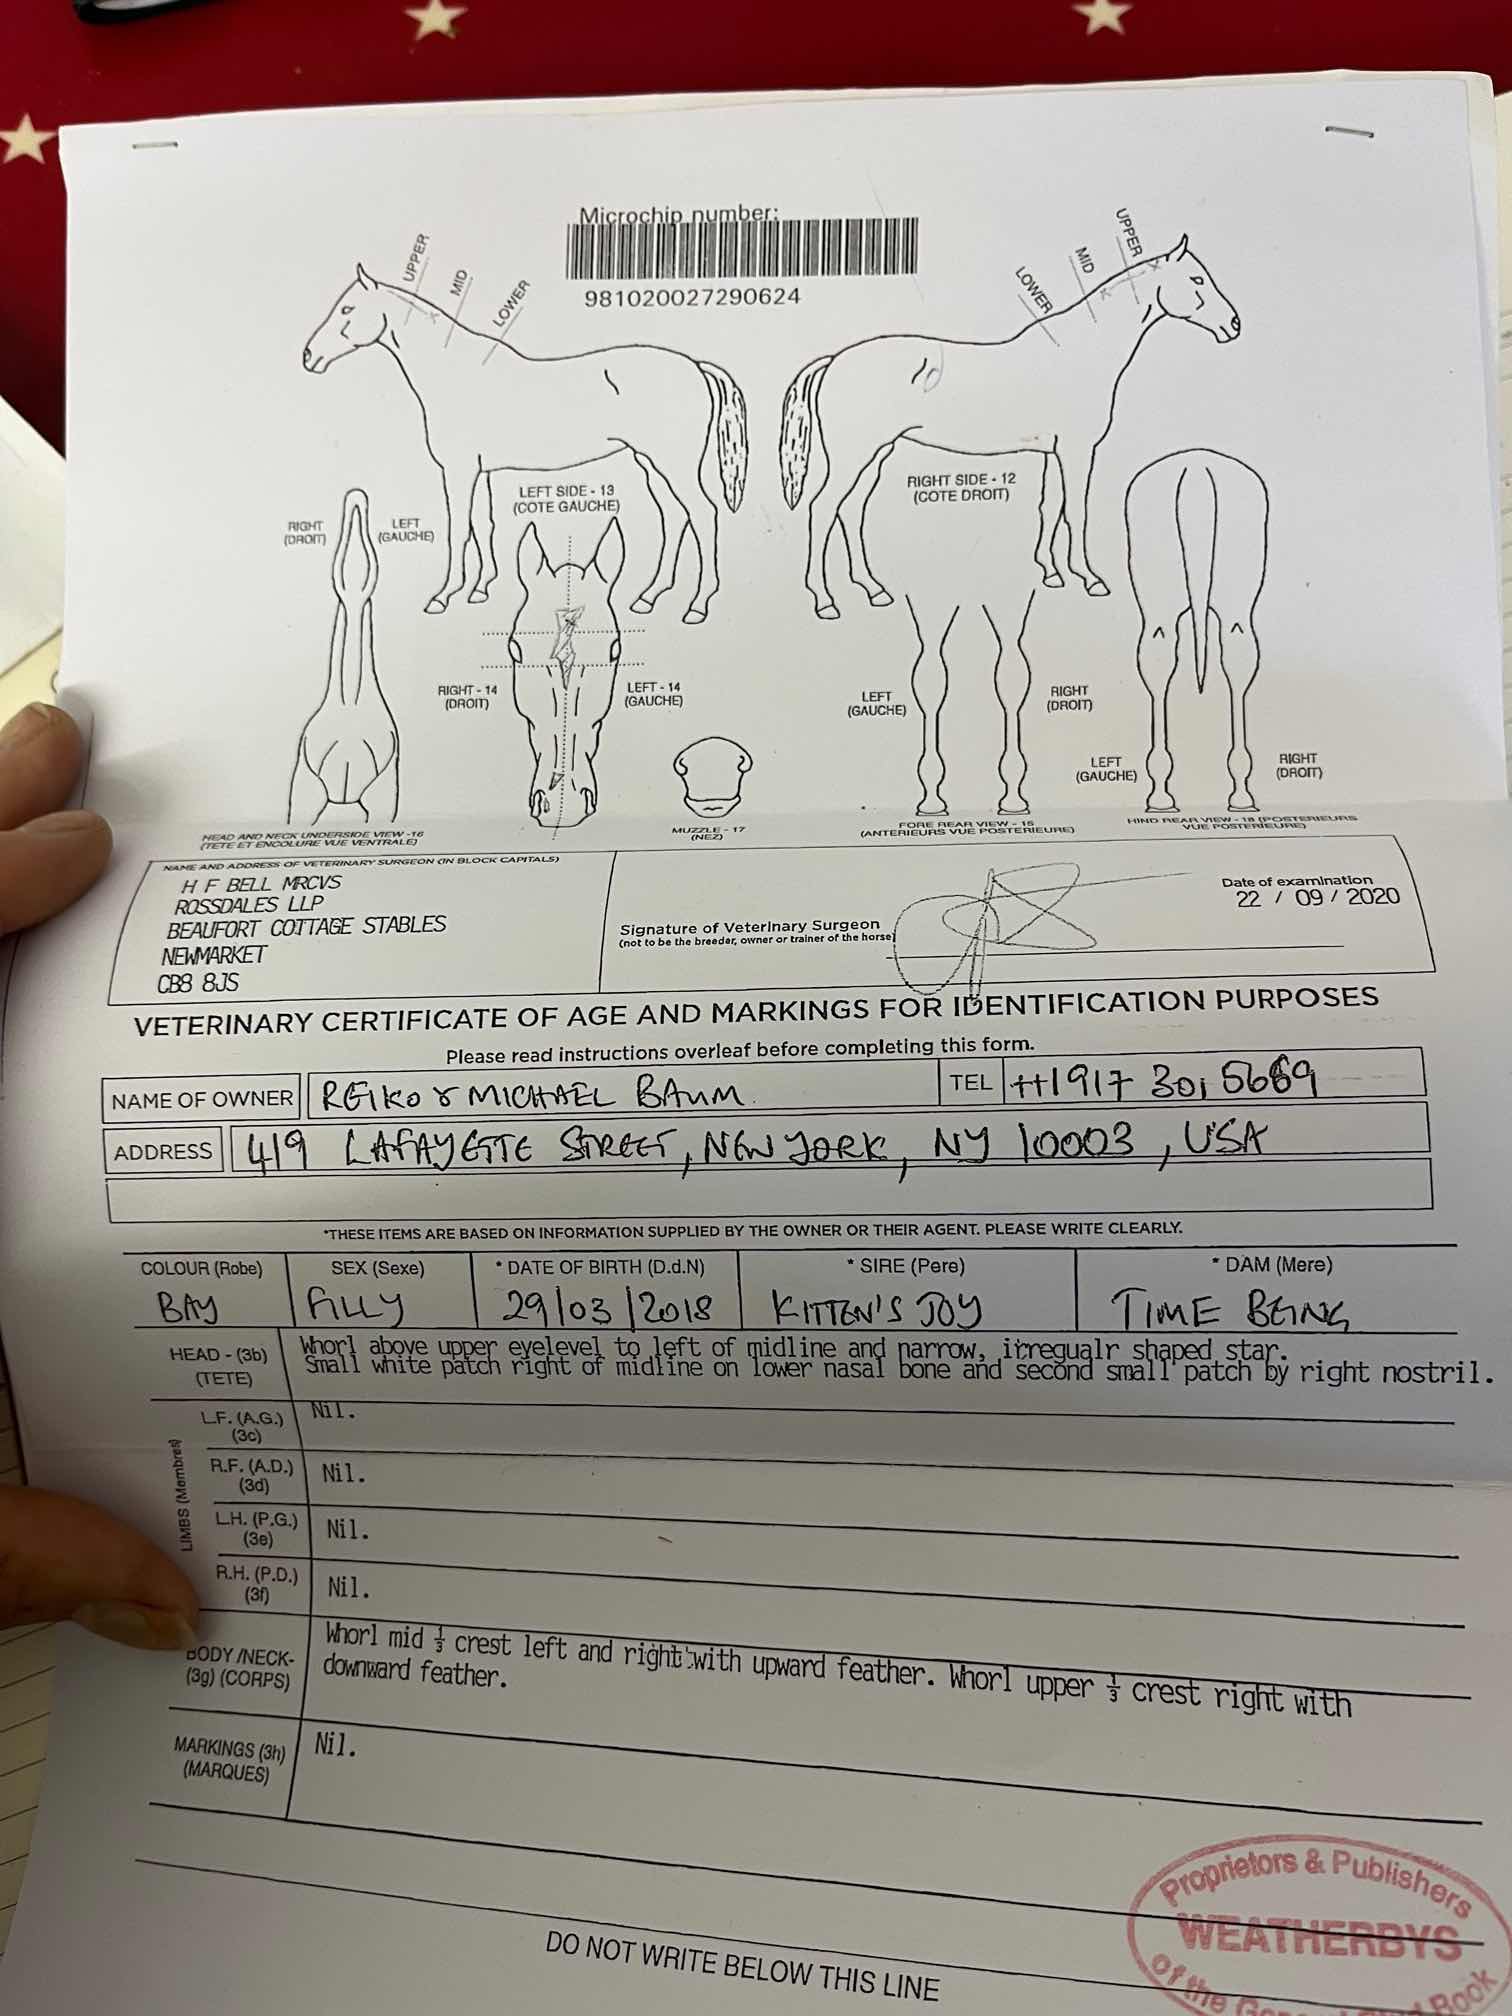 Microchip number:
981020027290624
UPPER
MID
LOWER
LOWER
MID
UPPER
LEFT SIDE - 13
(COTE GAUCHE)
RIGHT SIDE - 12
(COTE DROIT)
RIGHT
(DROIT)
LEFT
(GAUCHE)
RIGHT - 14
(DROIT)
LEFT - 14
(GAUCHE)
LEFT
(GAUCHE)
RIGHT
(DROIT)
LEFT
(GAUCHE)
RIGHT
(DROIT)
HEAD AND NECK UNDERSIDE VIEW -16
(TETE ET ENCOLURE VUE VENTRALE)
MUZZLE - 17
(NEZ)
FORE REAR VIEW - 15
(ANTERIEURS VUE POSTERIEURE)
HIND REAR VIEW - 18 (POSTERIEURS
VUE POSTERIEURE)
NAME AND ADDRESS OF VETERINARY SURGEON (IN BLOCK CAPITALS)
H F BELL MRCVS
ROSSDALES LLP
BEAUFORT COTTAGE STABLES
NEWMARKET
CB8 8JS
Signature of Veterinary Surgeon
(not to be the breeder, owner or trainer of the horse)
Date of examination
22 / 09 / 2020
VETERINARY CERTIFICATE OF AGE AND MARKINGS FOR IDENTIFICATION PURPOSES
Please read instructions overleaf before completing this form.
NAME OF OWNER REIKO & MICHAEL BAUM TEL ++1 917 301 5669
ADDRESS 419 LAFAYETTE STREET, NEW YORK, NY 10003, USA
*THESE ITEMS ARE BASED ON INFORMATION SUPPLIED BY THE OWNER OR THEIR AGENT. PLEASE WRITE CLEARLY.
COLOUR (Robe) SEX (Sexe) * DATE OF BIRTH (D.d.N) * SIRE (Pere) * DAM (Mere)
BAY FILLY 29/03/2018 KITTEN'S JOY TIME BEING
HEAD - (3b)
(TETE)
Whorl above upper eyelevel to left of midline and narrow, irregualr shaped star.
Small white patch right of midline on lower nasal bone and second small patch by right nostril.
LIMBS (Membres)
L.F. (A.G.)
(3c)
Nil.
R.F. (A.D.)
(3d)
Nil.
L.H. (P.G.)
(3e)
Nil.
R.H. (P.D.)
(3f)
Nil.
BODY /NECK-
(3g) (CORPS)
Whorl mid ⅓ crest left and right with upward feather. Whorl upper ⅓ crest right with
downward feather.
MARKINGS (3h)
(MARQUES)
Nil.
DO NOT WRITE BELOW THIS LINE
Proprietors & Publishers
WEATHERBYS
Of the General Book